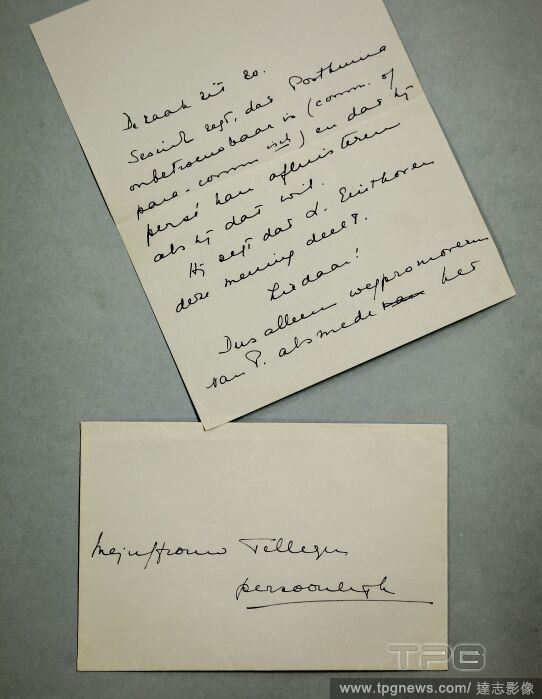 De zaak zit zo.
zegt, dat Posthuma
onbetrouwbaar is (comm. of
para-comm. isch) en dat hij
persé kan afluisteren
als hij dat wil.
Hij zegt dat d. Einthoven
deze mening deelt.
Ziedaar!
Dus alleen wegpromoveren
van P. alsmede het
Mejuffrouw Tellegen
persoonlijk
TPG
www.tpgnews.com/ 達志影像